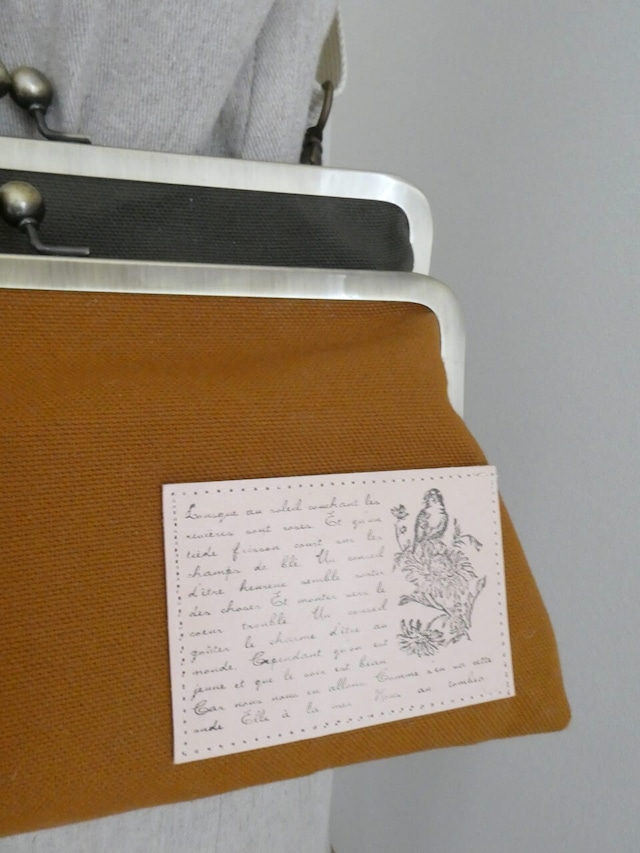 Lorsque au soleil couchant les
rivières sont roses Et qu'un
tiède frisson court sur les
champs de blé Un conseil
d'être heureux semble sortir
des choses Et monter vers le
coeur troublé Un conseil
goûter le charme d'être au
monde Cependant qu'on est
jeune et que le soir est beau
Car nous nous en allons Comme s'en va cette
onde Elle à la mer Nous au tombeau